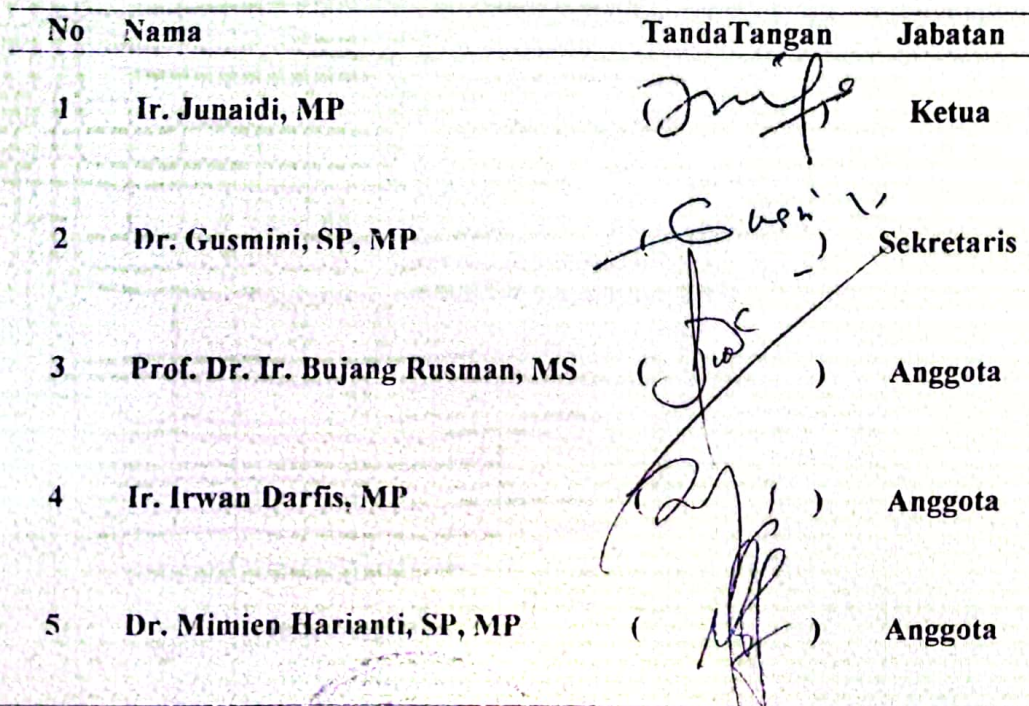 No Nama TandaTangan Jabatan
1 Ir. Junaidi, MP Ketua
2 Dr. Gusmini, SP, MP ( ) Sekretaris
3 Prof. Dr. Ir. Bujang Rusman, MS ( ) Anggota
4 Ir. Irwan Darfis, MP ( ) Anggota
5 Dr. Mimien Harianti, SP, MP ( ) Anggota